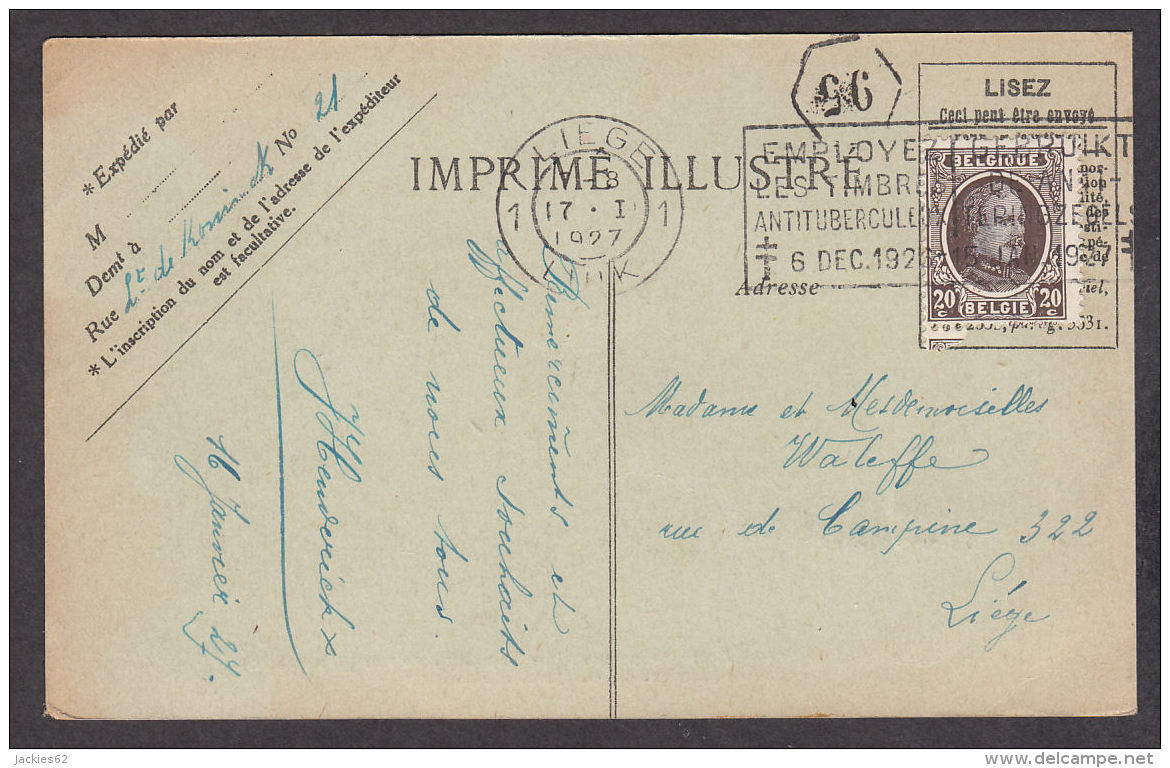 * Expédié par
M
Demt à
Rue Lt de Koninck No 21
* L'inscription du nom et de l'adresse de l'expéditeur
est facultative.
IMPRIMÉ ILLUSTRÉ
LIEGE
1 17 · I 1
1927
LUIK
95
LISEZ
Ceci peut être envoyé
EMPLOYEZ GEBRUIKT
LES TIMBRES DE ANTI-
ANTITUBERCULEUX TEERINGZEGELS
6 DEC.1926 - 15 JAN.1927
BELGIQUE
20 c 20 c
BELGIË
Adresse
Remerciments et
affectueux souhaits
de nous tous.
Henderickx
16 Janvier 27.
Madame et Mesdemoiselles
Waleffe
rue de Campine 322
Liége
Jackies62
www.delcampe.net